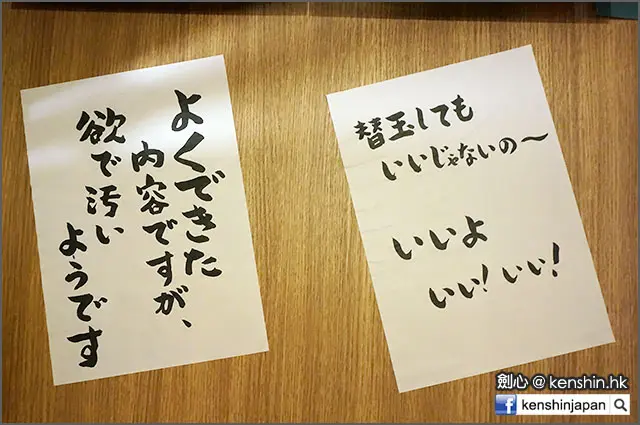 よくできた
内容ですが、
欲で汚い
ようです
替玉しても
いいじゃないの〜
いいよ
いい!いい!
劍心@kenshin.hk
kenshinjapan